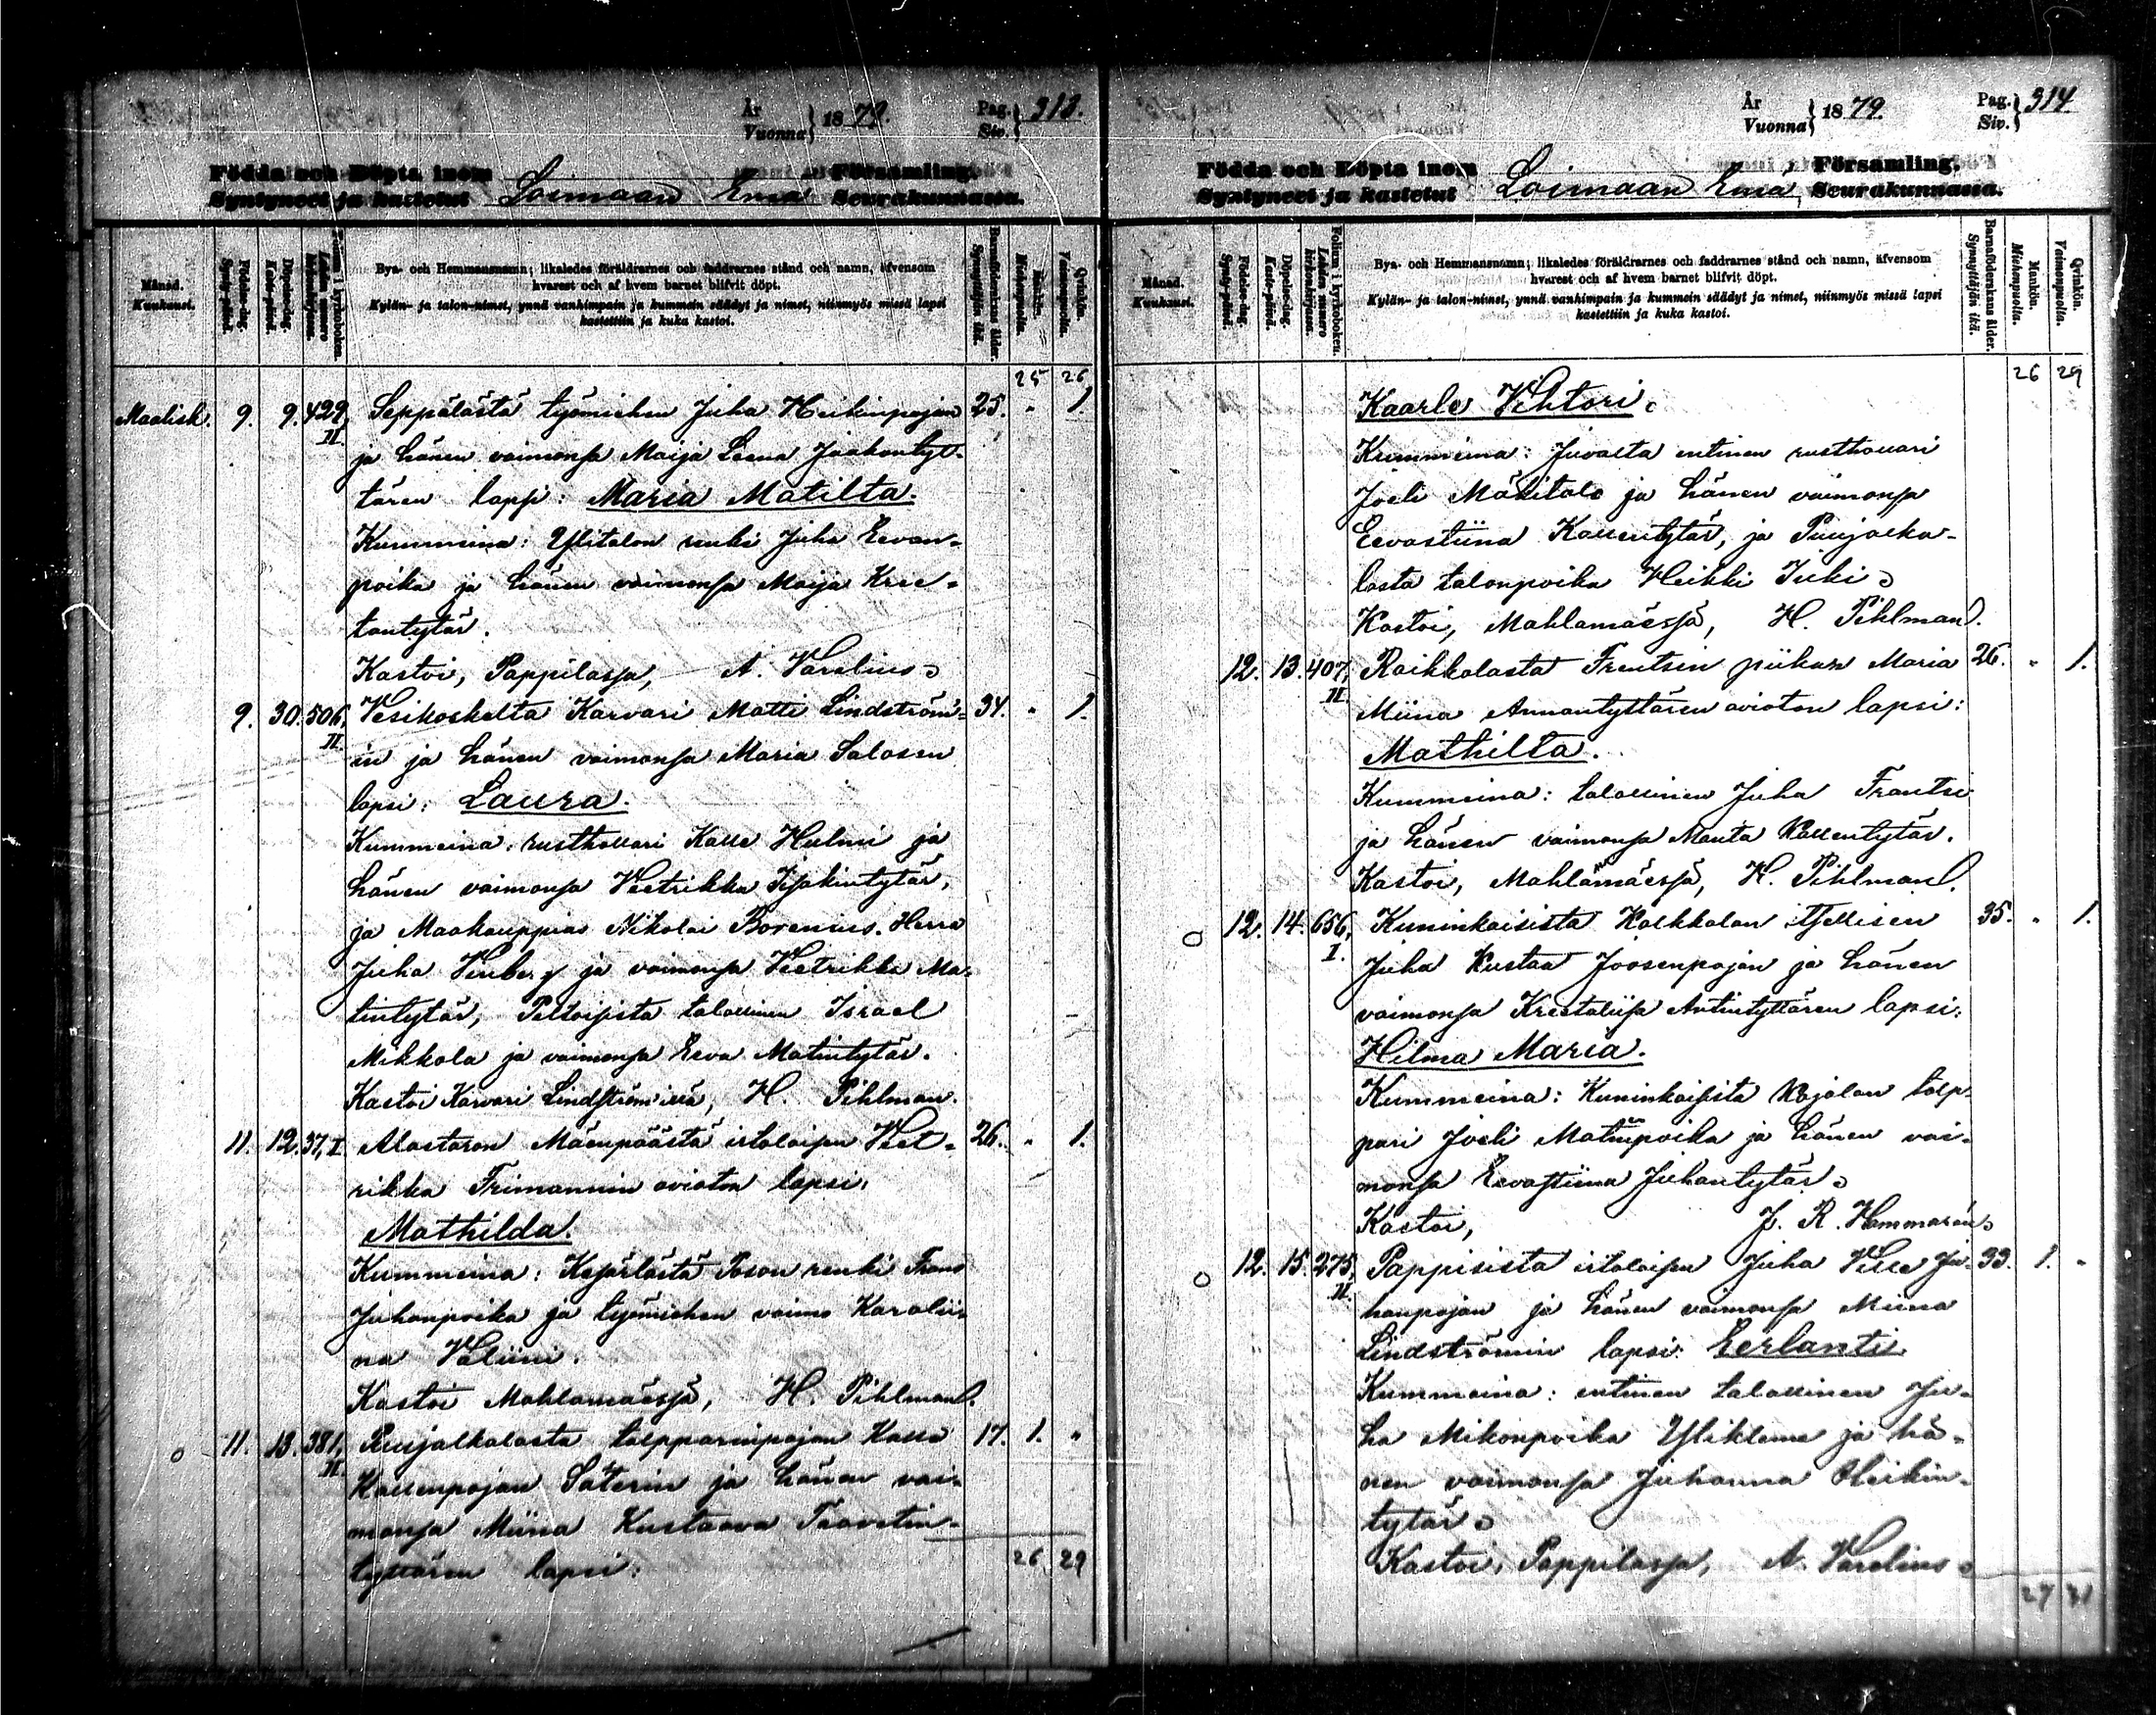 År
Vuonna } 1879.
Pag.
Siv. } 313.
Födda och Döpta inom
Syntyneet ja kastetut Loimaan Emä Församling.
Seurakunnassa.
Månad.
Kuukausi.
Födelse-dag.
Synty-päivä.
Döpelse-dag.
Kaste-päivä.
Folium i kyrkoboken.
Lehden numero kirkonkirjassa.
Bya- och Hemmansnamn; likaledes föräldrarnes och faddrarnes stånd och namn, äfvensom
hvarest och af hvem barnet blifvit döpt.
Kylän- ja talon-nimet, ynnä vanhimpain ja kummein säädyt ja nimet, niinmyös missä lapsi
kastettiin ja kuka kastoi.
Barnaföderskans ålder.
Synnyttäjän ikä.
Mankön.
Miehenpuolta.
Qvinkön.
Vaimonpuolta.
25 26
Maalisk. 9. 9. 429, II. Seppälästä työmiehen Juha Heikinpojan 25. " 1.
ja hänen vaimonsa Maija Leena Jaakontyt-
tären lapsi: Maria Matilta.
Kummeina: Ylitalon renki Juha Eevan-
poika ja hänen vaimonsa Maija Kres-
tantytär.
Kastoi, Pappilassa, A. Varelius.
9. 30. 506, II. Vesikoskelta Karvari Matti Lindström- 34. " 1.
in ja hänen vaimonsa Maria Salosen
lapsi: Laura.
Kummeina: rusthollari Kalle Hulmi ja
hänen vaimonsa Veetrikka Iisakintytär,
ja Maakauppias Nikolai Borenius. Herra
Juha Venberg ja vaimonsa Veetrikka Ma-
tintytär, Peltoisista talollinen Israel
Mikkola ja vaimonsa Eeva Matintytär.
Kastoi Karvari Lindström'issä, H. Pihlman.
11. 12. 37, I Alastaron Mäenpäästä itsolaisen Veet- 26. " 1.
rikka Frimannin avioton lapsi:
Mathilda.
Kummeina: renki Frans
Juhanpoika ja työmiehen vaimo Karolii-
na Veliini.
Kastoi Mahlamäessä, H. Pihlman.
11. 13. 381, II. Puujalkalasta talpparinpojan Kalle 17. 1. "
Kallenpojan Säterin ja hänen vai-
monsa Miina Kustaava Taavetin-
tyttären lapsi:
26 29
År
Vuonna } 1879.
Pag.
Siv. } 314.
Födda och Döpta inom
Syntyneet ja kastetut Loimaan Emä Församling.
Seurakunnassa.
Månad.
Kuukausi.
Födelse-dag.
Synty-päivä.
Döpelse-dag.
Kaste-päivä.
Folium i kyrkoboken.
Lehden numero kirkonkirjassa.
Bya- och Hemmansnamn; likaledes föräldrarnes och faddrarnes stånd och namn, äfvensom
hvarest och af hvem barnet blifvit döpt.
Kylän- ja talon-nimet, ynnä vanhimpain ja kummein säädyt ja nimet, niinmyös missä lapsi
kastettiin ja kuka kastoi.
Barnaföderskans ålder.
Synnyttäjän ikä.
Mankön.
Miehenpuolta.
Qvinkön.
Vaimonpuolta.
26 29
Kaarle Vihtori.
Kummeina: Juvasta entinen rusthollari
Joeli Mäkitalo ja hänen vaimonsa
Eevastiina Kallentytär, ja Puujalka-
lasta talonpoika Heikki Juki.
Kastoi, Mahlamäessä, H. Pihlman.
12. 13. 407, II. Raikkolasta Frentsin piikan Maria 26. " 1.
Miina Annantyttären avioton lapsi:
Mathilta.
Kummeina: talollinen Juha Frantsi
ja hänen vaimonsa Manta Kallentytär.
Kastoi, Mahlamäessä, H. Pihlman.
12. 14. 656, I. Kuninkaisista Kalkkalan itsellisen 35. " 1.
Juha Kustaa Joosenpojan ja hänen
vaimonsa Krestaliisa Antintyttären lapsi:
Hilma Maria.
Kummeina: Kuninkaisista Kojolan talp-
pari Joeli Matinpoika ja hänen vai-
monsa Eevastiina Juhantytär.
Kastoi, J. R. Hammarén.
12. 15. 275, II. Pappisista itsolaisen Juha Ville Ju- 33. 1. "
hanpojan ja hänen vaimonsa Miina
Lindströmin lapsi: Eerlanti.
Kummeina: entinen talollinen Ju-
ha Mikonpoika Ylikleme ja hä-
nen vaimonsa Juhanna Heikin-
tytär.
Kastoi, Pappilassa, A. Varelius.
27 31